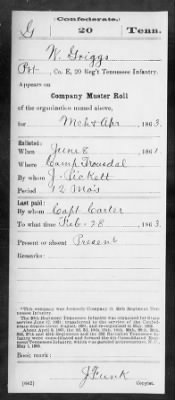 (Confederate.)
G 20 Tenn.
W. Griggs
Pvt., Co. E, 20 Reg't Tennessee Infantry.
Appears on
Company Muster Roll
of the organization named above,
for Mch & Apr, 1863.
Enlisted:
When June 8, 1861
Where Camp Trousdal
By whom J. Pickett
Period 12 Mo's
Last paid:
By whom Capt Carter
To what time Feb. 28, 1863.
Present or absent Present
Remarks:
Book mark:
J Funk
(642) Copyist.